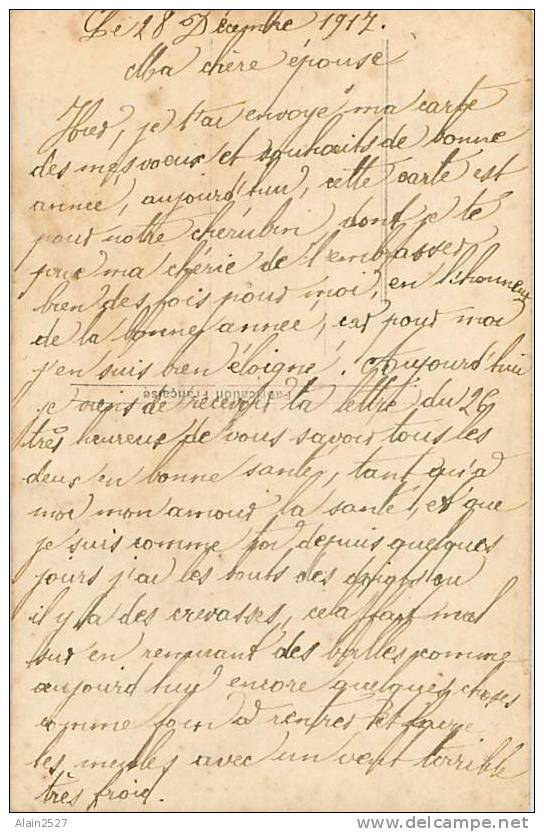 Le 28 Décembre 1917.
Ma chère épouse
Hier, je t'ai envoyé ma carte
des mes voeux et souhaits de bonne
année, aujourd'hui, cette carte est
pour notre chérubin dont je te
prie ma chérie de l'embrasser
bien des fois pour moi, en l'honneur
de la bonne année, car pour moi
j'en suis bien éloigné. Aujourd'hui
Fabrication Française
je viens de recevoir ta lettre du 26
très heureux de vous savoir tous les
deux en bonne santé, tant qu'à
moi mon amour la santé, et que
je suis comme toi depuis quelques
jours j'ai les bouts des doigts ou
il y a des crevasses, cela fait mal
sur en remuant des balles comme
aujourd'huy encore quelques choses
comme foin a rentrer et
les meules avec un vent terrible
très froid.
Alain2527
delcampe.net